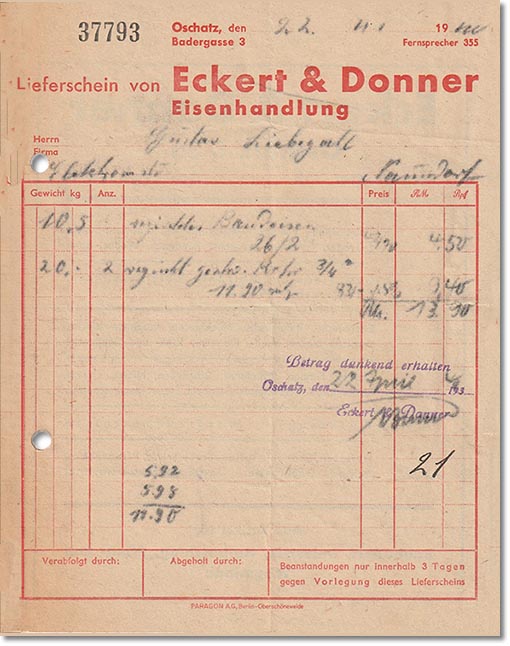 37793
Oschatz, den 22. 4. 1940
Badergasse 3
Fernsprecher 355
Lieferschein von Eckert & Donner
Eisenhandlung
Herrn
Firma
Gustav Liebegall
Naundorf
Gewicht kg Anz. Preis RM Rpf
10,5 Bandeisen
26/2 4 50
20.- 2 3/4"
11.90 9 40
13. 90
Betrag dankend erhalten
Oschatz, den 22 April 193
Eckert & Donner
21
5.92
5.98
11.90
Verabfolgt durch:
Abgeholt durch:
Beanstandungen nur innerhalb 3 Tagen
gegen Vorlegung dieses Lieferscheins
PARAGON A.G., Berlin-Oberschöneweide